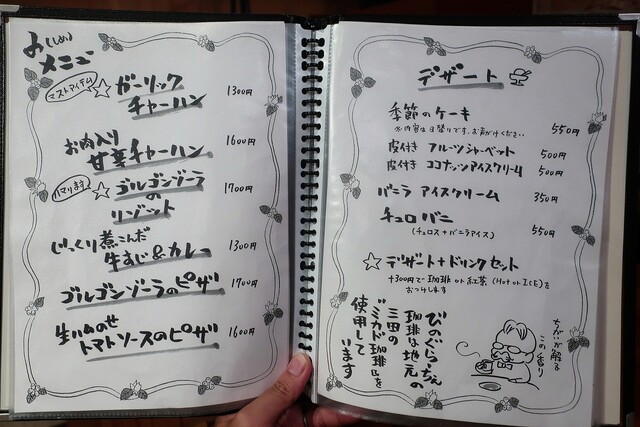 お(しめ)
メニュー
マストアイテム
☆ ガーリック
チャーハン 1300円
お肉入り
甘夏チャーハン 1600円
ハマります
☆ ゴルゴンゾーラ 1700円
の
リゾット
じっくり煮こんだ
牛すじ&カレー 1300円
ゴルゴンゾーラのピザ 1700円
生ハムのせ
トマトソースのピザ 1600円
デザート
季節のケーキ
※内容は日替りです。お声がけください 550円
皮付き フルーツシャーベット 500円
皮付き ココナッツアイスクリーム 500円
バニラ アイスクリーム 350円
チュロバニ
(チュロス+バニラアイス) 550円
☆ デザート+ドリンクセット
+300円で珈琲 or 紅茶 (Hot or ICE)を
おつけします
ひのぐらっちんの
珈琲は地元
三田の
"ミカド珈琲"を
使用して
います
ちがいが解る
この香り